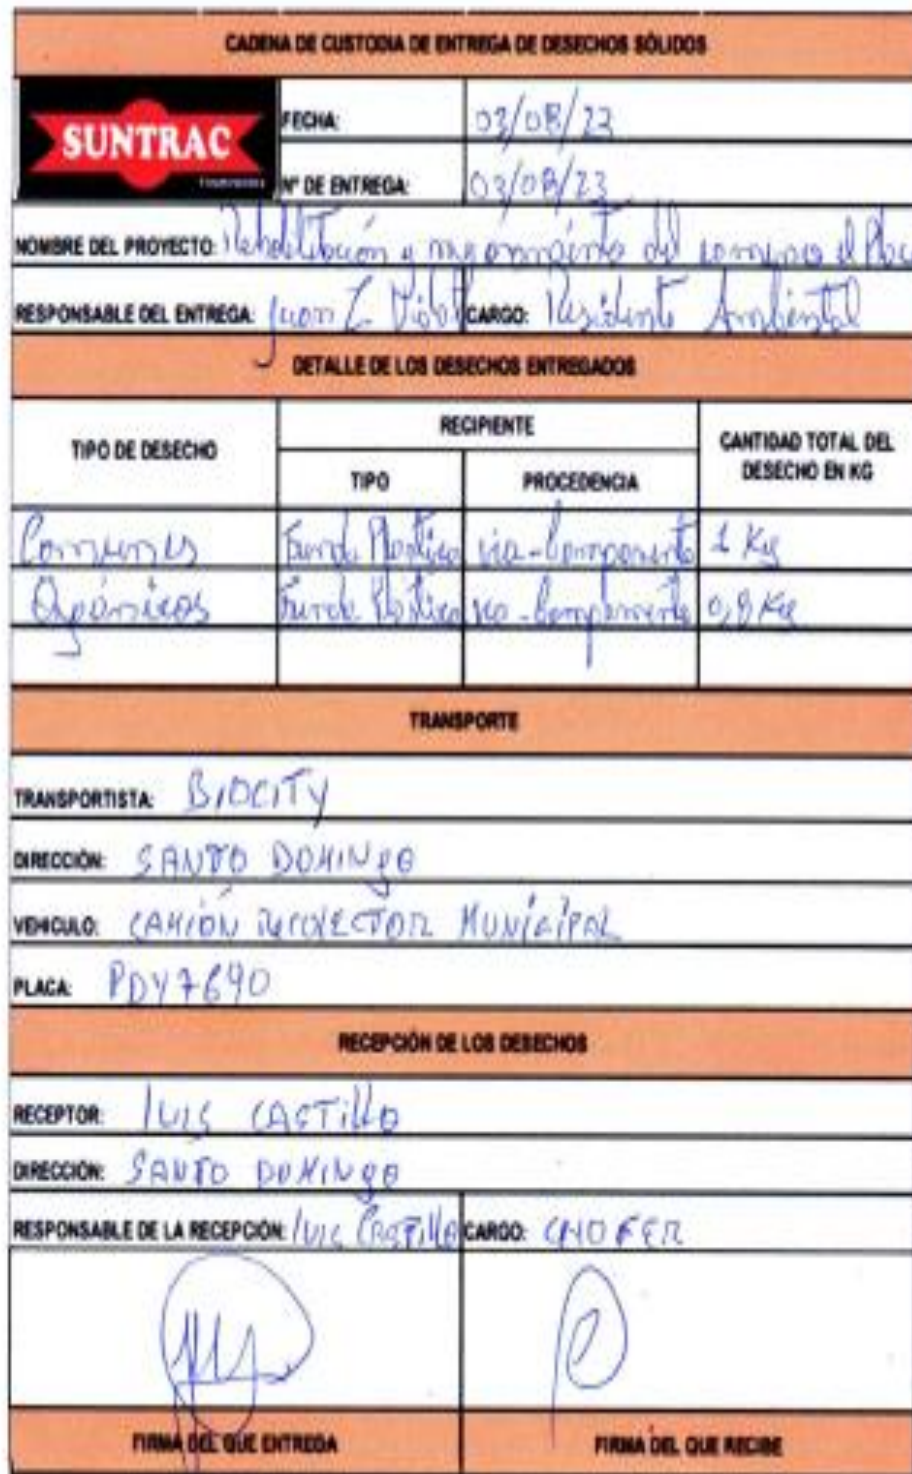 CADENA DE CUSTODIA DE ENTREGA DE DESECHOS SÓLIDOS
SUNTRAC
FECHA: 03/08/23
Nº DE ENTREGA: 03/08/23
NOMBRE DEL PROYECTO: Rehabilitación y mejoramiento del camino el
RESPONSABLE DEL ENTREGA: Juan CARGO: Residente Ambiental
DETALLE DE LOS DESECHOS ENTREGADOS
TIPO DE DESECHO RECIPIENTE CANTIDAD TOTAL DEL DESECHO EN KG
TIPO PROCEDENCIA
Comunes Funda Plastica via-Campamento 1 Kg
Orgánicos Funda Plastica via-Campamento 0,8 Kg
TRANSPORTE
TRANSPORTISTA: BIOCITY
DIRECCIÓN: SANTO DOMINGO
VEHICULO: CAMIÓN RECOLECTOR MUNICIPAL
PLACA: PDY7690
RECEPCIÓN DE LOS DESECHOS
RECEPTOR: LUIS CASTILLO
DIRECCIÓN: SANTO DOMINGO
RESPONSABLE DE LA RECEPCIÓN: LUIS CASTILLO CARGO: CHOFER
FIRMA DEL QUE ENTREGA FIRMA DEL QUE RECIBE